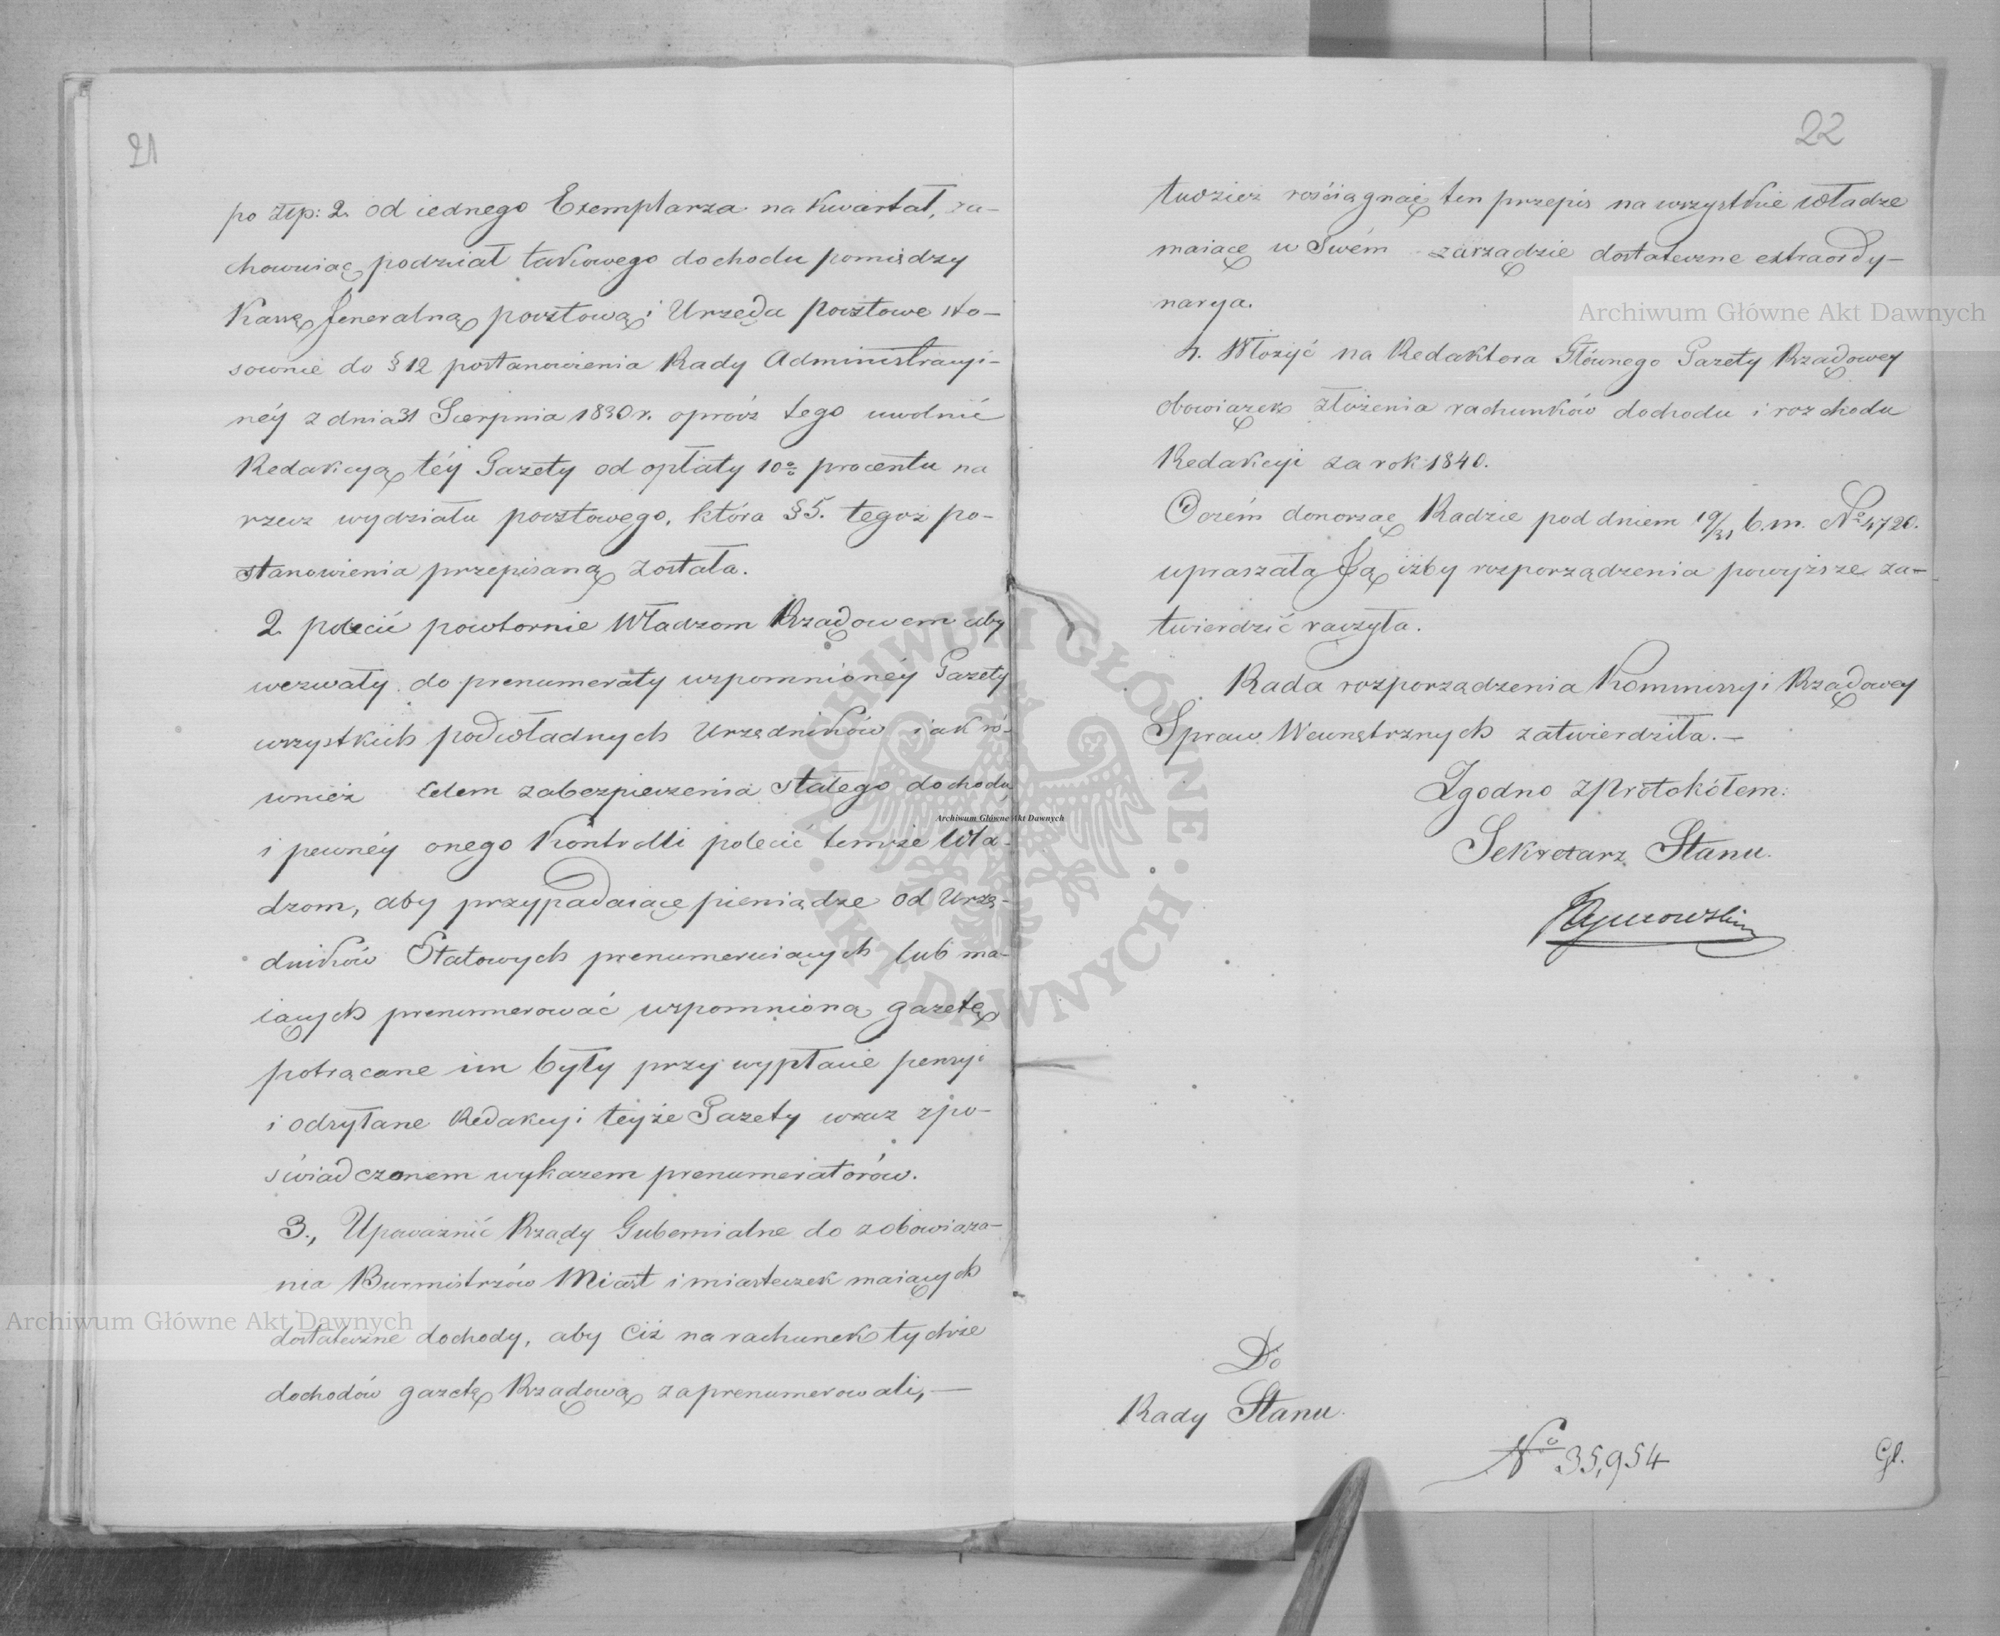 21
po złp: 2. od iednego Exemplarza na kwartał, za-
chowuiąc podział takowego dochodu pomiędzy
Kassę Jeneralną pocztową i Urzęda Pocztowe sto-
sownie do § 12 postanowienia Rady Administracyi-
néy z dnia 31 Sierpnia 1830 r. oprócz tego uwolnić
Redakcyą téy Gazety od opłaty 10º procentu na
rzecz wydziału pocztowego, która § 5. tegoż po-
stanowienia przepisaną została.
2. polecić powtornie Władzom Rządowem aby
wezwały do prenumeraty wspomnionéy Gazety
wszystkich podwładnych Urzędników iak ró-
wnież celem zabezpieczenia stałego dochodu,
i pewnéy onego Kontrolli polecić temże Wła-
dzom, aby przypadaiące pieniądze od Urzę-
dników Etatowych prenumeruiących lub ma-
iących prenumerować wspomnioną gazetę
potrącane im były przy wypłacie pensyi
i odsyłane Redakcyi teyże Gazety wraz z po-
świadczonem wykazem prenumeratorów.
3., Upoważnić Rządy Gubernialne do zobowiąza-
nia Burmistrzów Miast i miasteczek maiących
dostateczne dochody, aby ciż na rachunek tychże
dochodów gazetę Rządową zaprenumerowali,—
22
tudzież rościągnąć ten przepis na wszystkie władze
maiące w Swém zarządzie dostateczne extraordy-
narya.
4. Włożyć na Redaktora Głównego Gazety Rządowey
obowiązek złożenia rachunków dochodu i rozchodu
Redakcyi za rok 1840.
Oczém donosząc Radzie pod dniem 19/31 b.m. Nº 4720.
upraszała Ją iżby rozporządzenia powyższe za-
twierdzić raczyła.
Rada rozporządzenia Kommissyi Rządowey
Spraw Wewnętrznych zatwierdziła.—
Zgodno z Protokółem:
Sekretarz Stanu.
Do
Rady Stanu.
Nº 35,954
Gl.
Archiwum Główne Akt Dawnych
Archiwum Główne Akt Dawnych
Archiwum Główne Akt Dawnych
ARCHIWUM GŁÓWNE AKT DAWNYCH